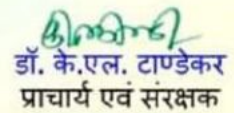 डॉ. के.एल. टाण्डेकर
प्राचार्य एवं संरक्षक